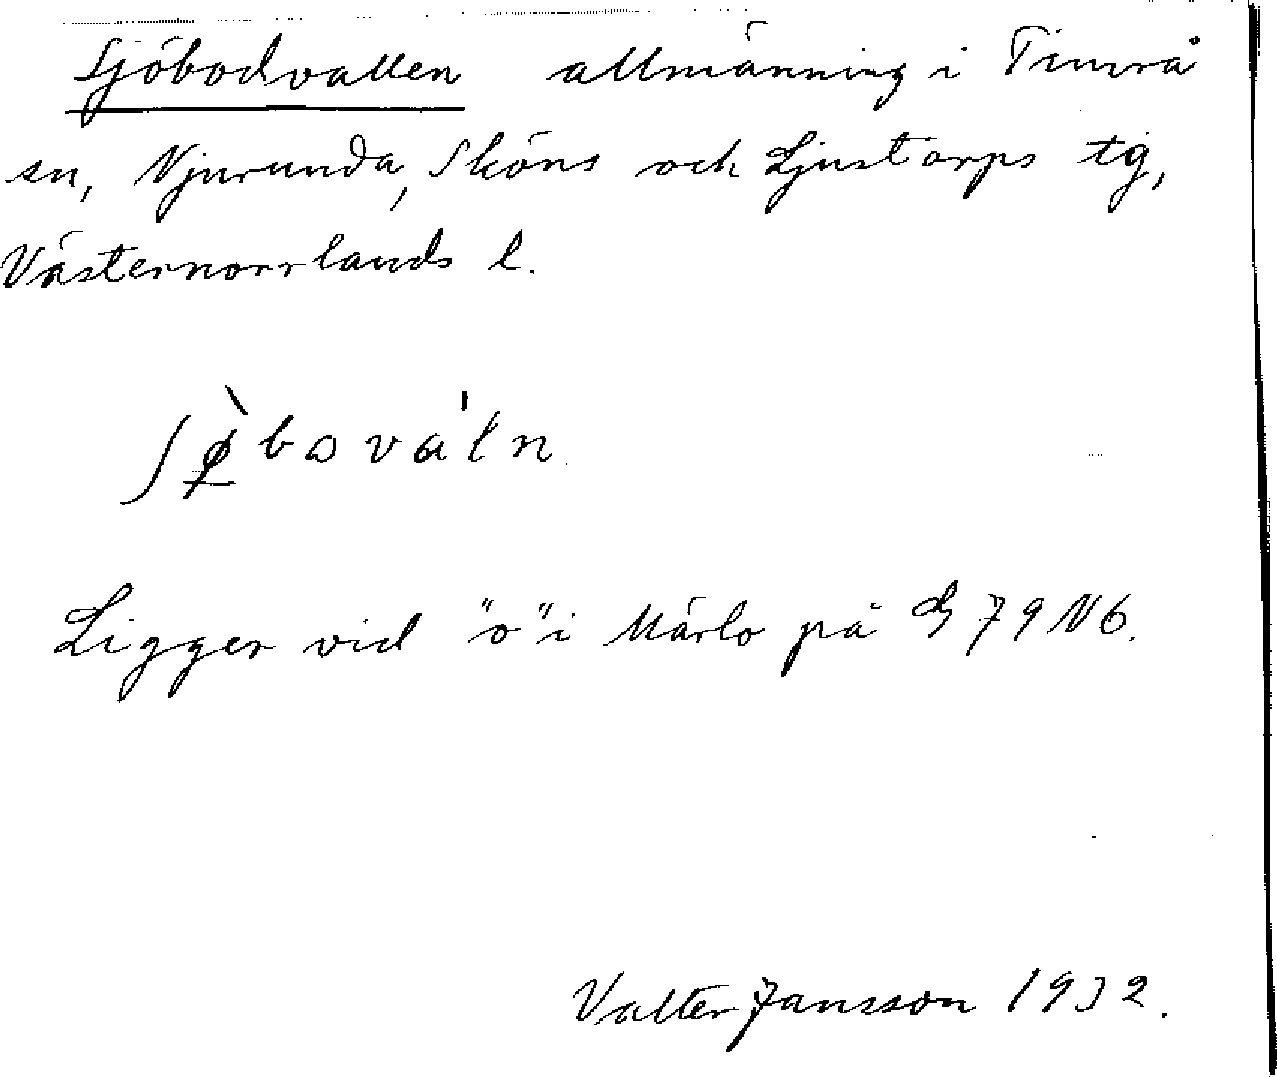 Sjöbodvallen allmänning i Timrå
sn, Njurunda, Sköns och Ljustorps tg,
Västernorrlands l.
ʃø̀bovaˈln
Ligger vid "o" i Märlo på 79 N6.
Valter Jansson 1932.